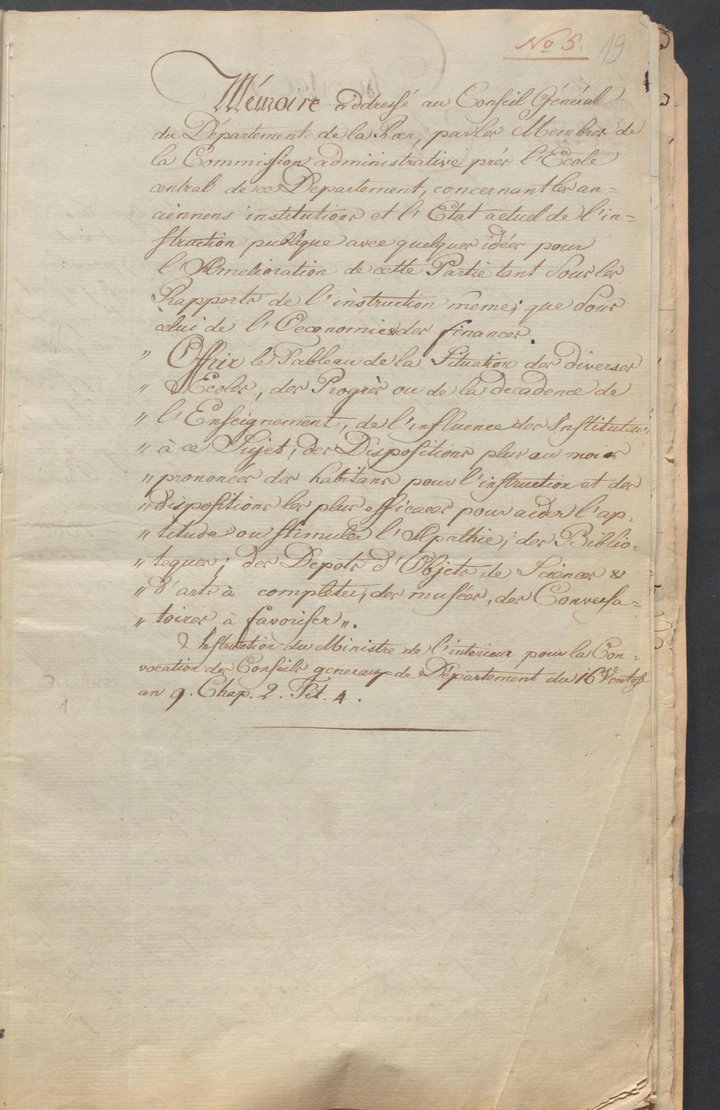 No 5. 19
Mémoire addressé au Conseil Général
du Département de la Roer, par les Membres de
la Commission administrative près l'Ecole
central de ce Departement, concernant les an-
ciennens institutions et l'Etat actuel de l'in-
struction publique avec quelques idées pour
l'Amelioration de cette Partie tant sous les
Rapports de l'instruction meme, que sous
celui de l'Oeconomie des finances.
" Offrir le Tableau de la Situation des diverses
" Ecoles, des Progrès ou de la decadence de
" l'Enseignement, de l'influence des Instituteurs
" à ce Sujet, des Dispositions plus au moins
" prononcés des habitans pour l'instruction et des
" dispositions les plus efficaces pour aider l'ap-
" titude ou stimuler l'Apathie; des Biblio-
" teques; des Depots d'Objets de Sciences &
" d'arts à completer, des musées, des Conversa-
" toires à favoriser ".
Instruction du Ministre de l'interieur pour la Con-
vocation des Conseils generaux de Departement du 16 Ventose
an 9. Chap. 2. Tit. 4.
1